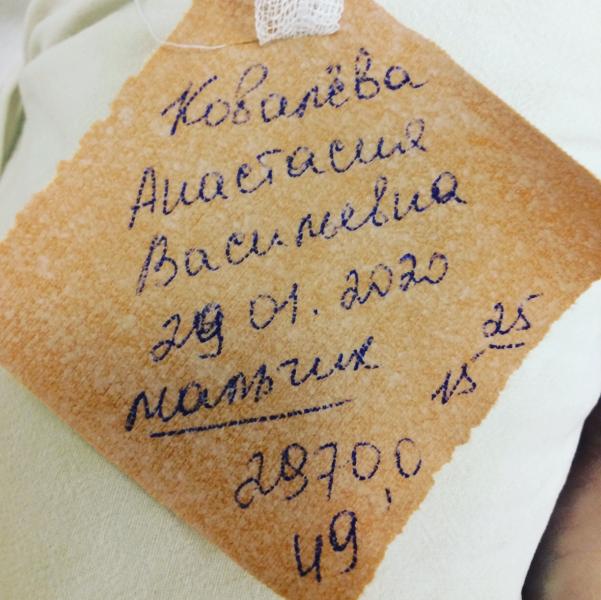 Ковалёва
Анастасия
Васильевна
29 01. 2020
мальчик 15 25
2970,0
49